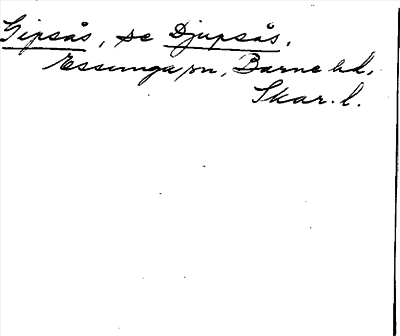 Gipsås, se Djupsås,
Essunga sn, Barne hd,
Skar. l.